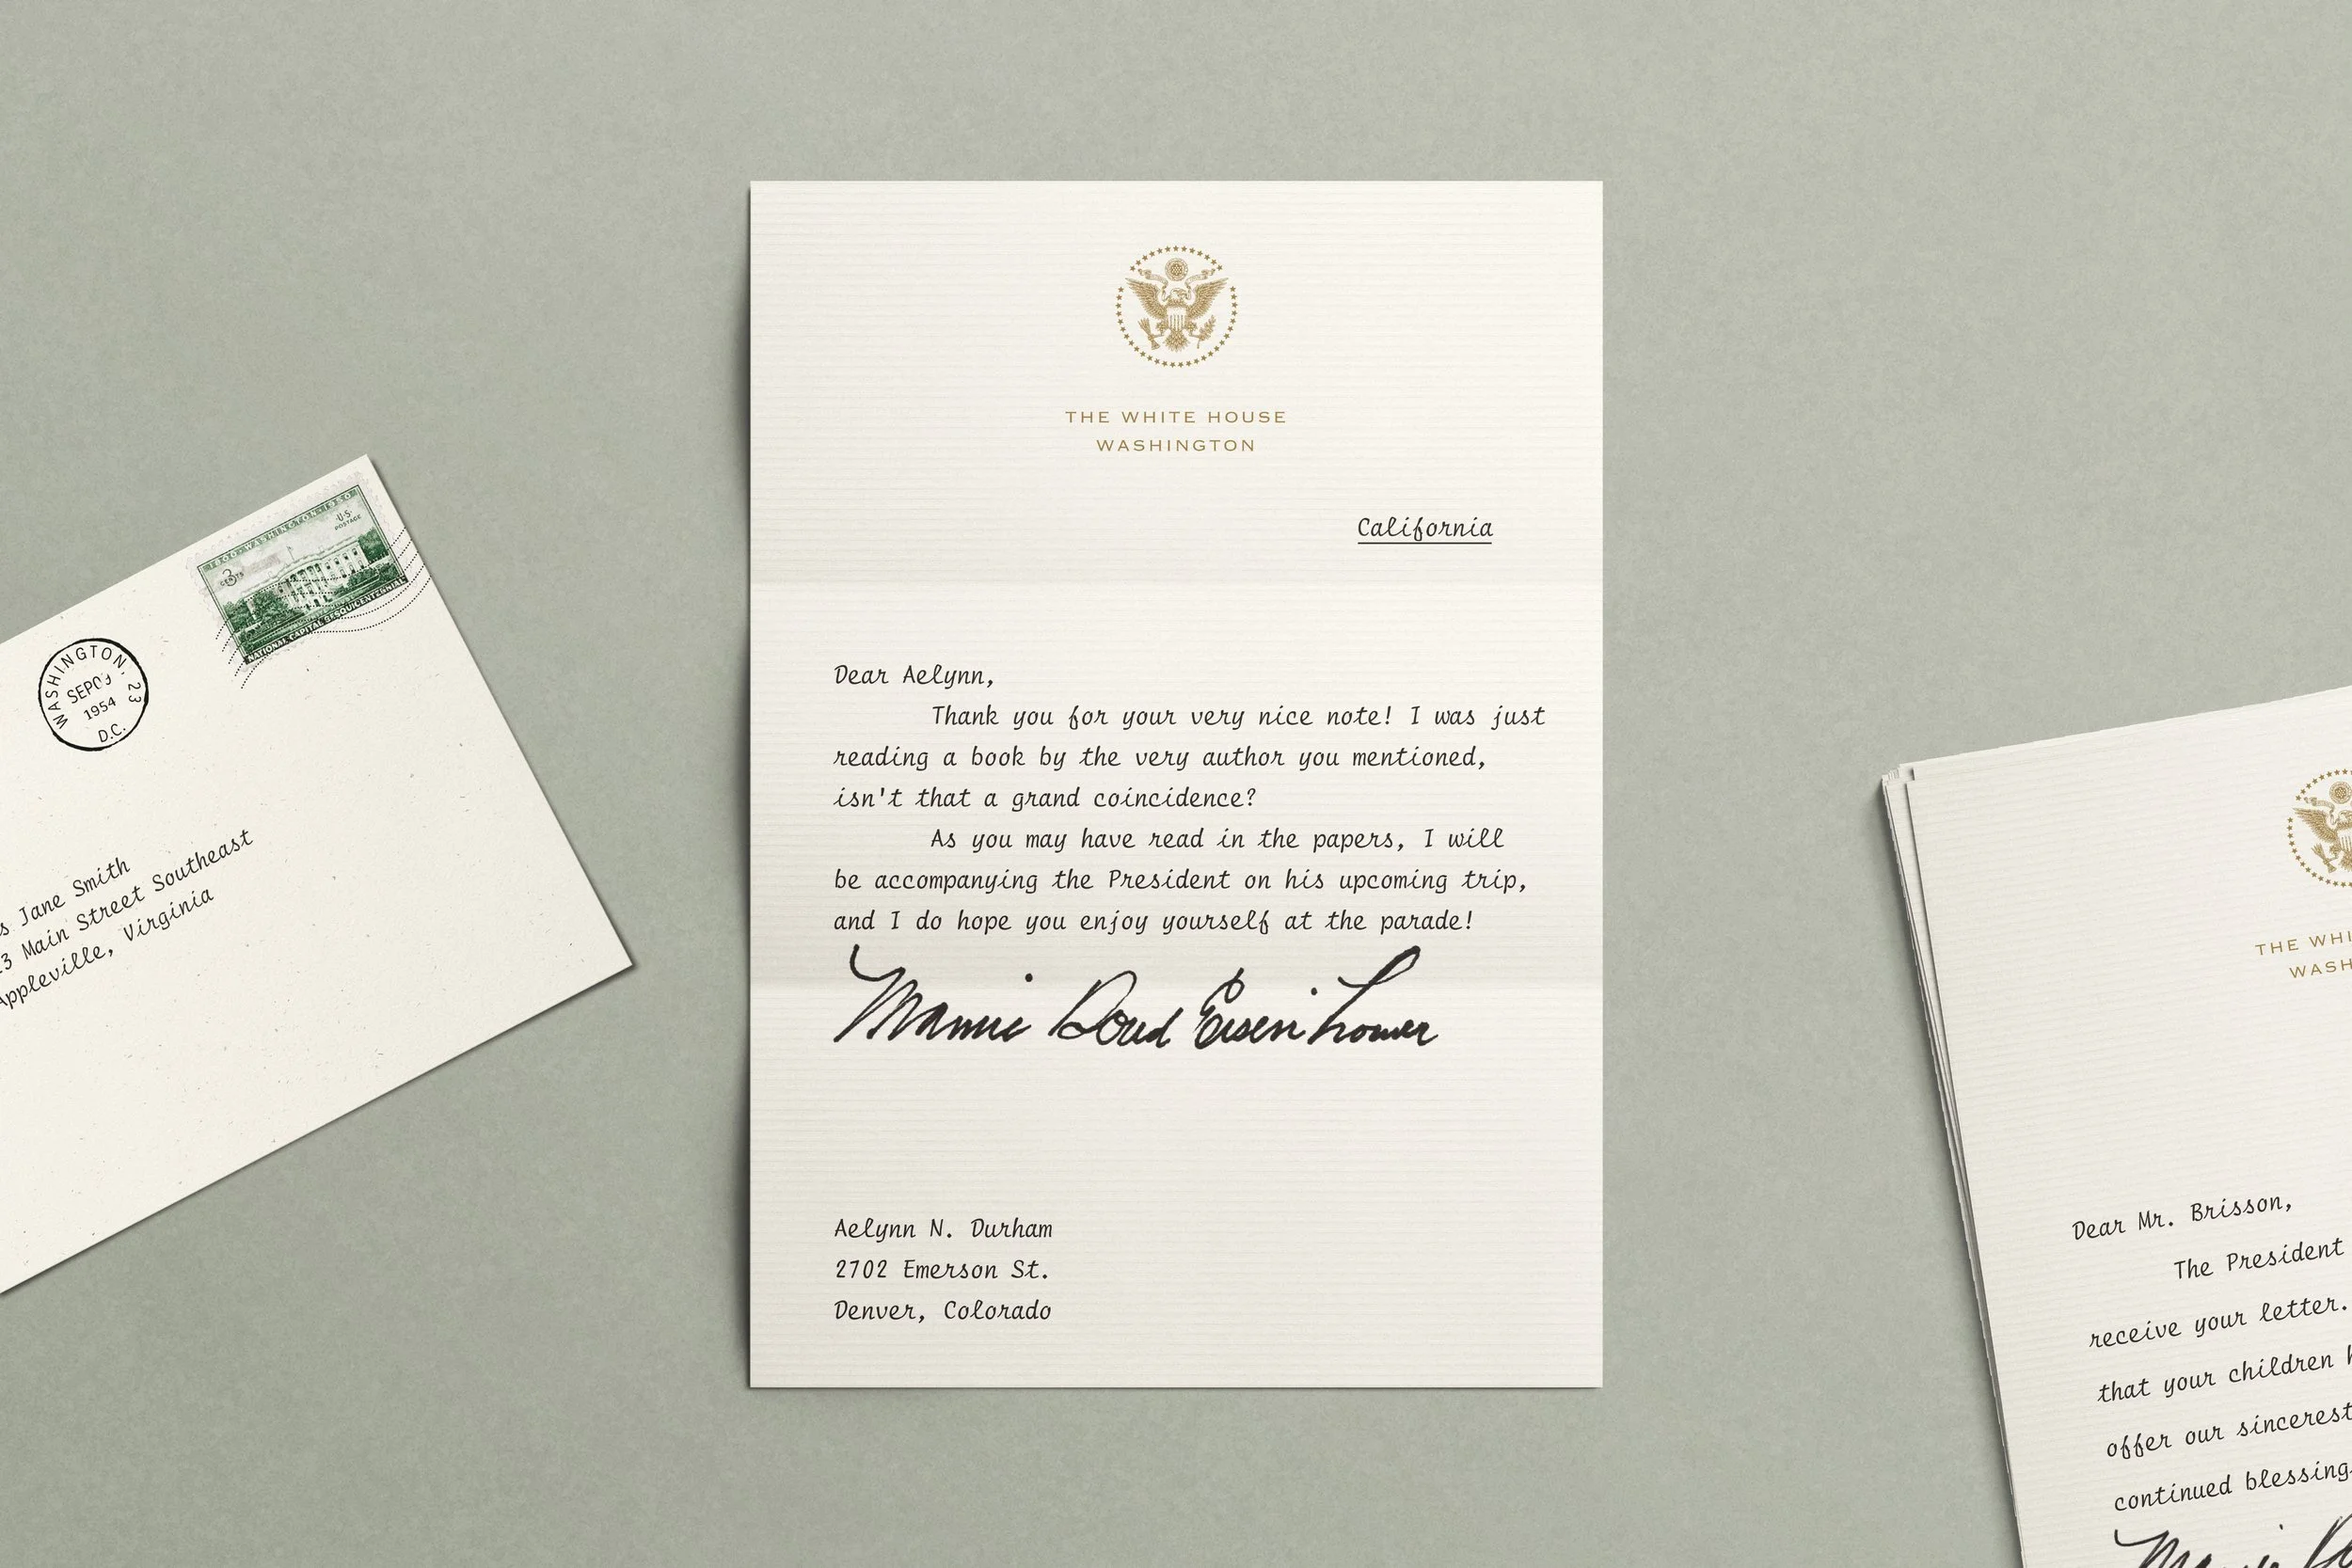 1800·WASHINGTON·1950
U·S·
POSTAGE
3
CENTS
NATIONAL CAPITAL SESQUICENTENNIAL
WASHINGTON, 23
1954
D.C.
s Jane Smith
23 Main Street Southeast
Appleville, Virginia
THE WHITE HOUSE
WASHINGTON
California
Dear Aelynn,
Thank you for your very nice note! I was just
reading a book by the very author you mentioned,
isn't that a grand coincidence?
As you may have read in the papers, I will
be accompanying the President on his upcoming trip,
and I do hope you enjoy yourself at the parade!
Mamie Doud Eisenhower
Aelynn N. Durham
2702 Emerson St.
Denver, Colorado
THE WHI
WASH
Dear Mr. Brisson,
The President
receive your letter.
that your children
offer our sincerest
continued blessing
Mamie